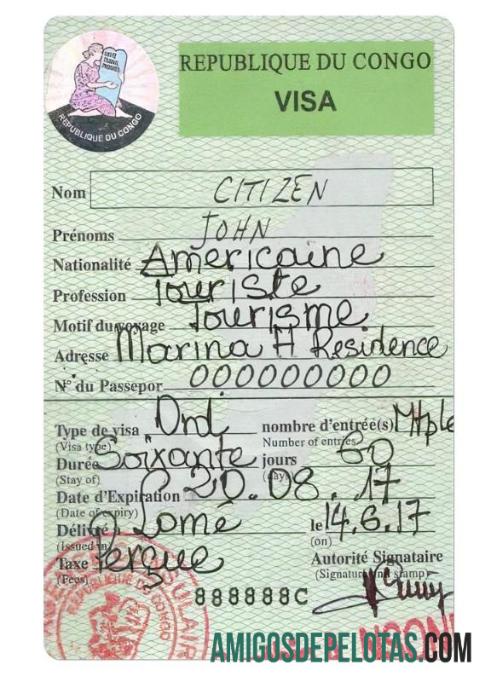 REPUBLIQUE DU CONGO
VISA
UNITÉ
TRAVAIL
PROGRÈS
REPUBLIQUE DU CONGO
Nom CITIZEN
Prénoms JOHN
Nationalité Américaine
Profession Touriste
Motif du voyage Tourisme
Adresse Marina H Residence
N° du Passepor 000000000
Type de visa Ord nombre d'entrée(s) Mtple
(Visa type) Number of entries
Durée Soixante jours 60
(Stay of) (days)
Date d'Expiration 20.08.17
(Date of expiry)
Délivré à Lomé le 14.6.17
(Issued in) (on)
Taxe Perçue Autorité Signataire
(Fees) (Signature and stamp)
888888C
REPUBLIQUE DU CONGO
AMIGOSDEPELOTAS.COM